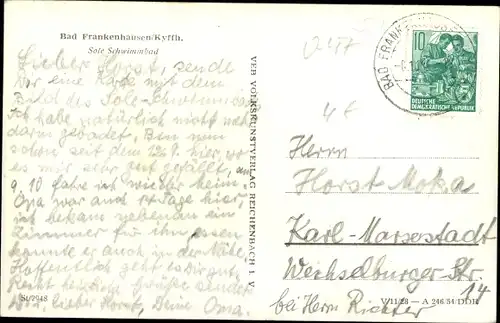 Bad Frankenhausen/Kyffh.
Sole Schwimmbad
Lieber Horst, sende
Dir eine Karte mit dem
Bild des Sole-Schwimmb.
Ich habe natürlich nicht
darin gebadet. Bin nun
schon seit dem 12.9. hier, wo
es mir sehr gut gefällt, am
9.10 fahre ich wieder heim.
Oma war auch 14 Tage hier,
ich bekam nebenan ein
Zimmer für ihn, essen
konnte er auch in der Nähe.
Hoffentlich geht es Dir gut.
Recht herzliche Grüße sendet
Dir, lieber Horst, Deine Oma.
St/2948
VEB VOLKSKUNSTVERLAG REICHENBACH I. V.
BAD FRANKENHAUSEN
10
DEUTSCHE
DEMOKRATISCHE REPUBLIK
4 E
Herrn
Horst Moka
Karl-Marxstadt
Wechselburger Str.
14
bei Herrn Richter
V/11/28 — A 246/54/DDR